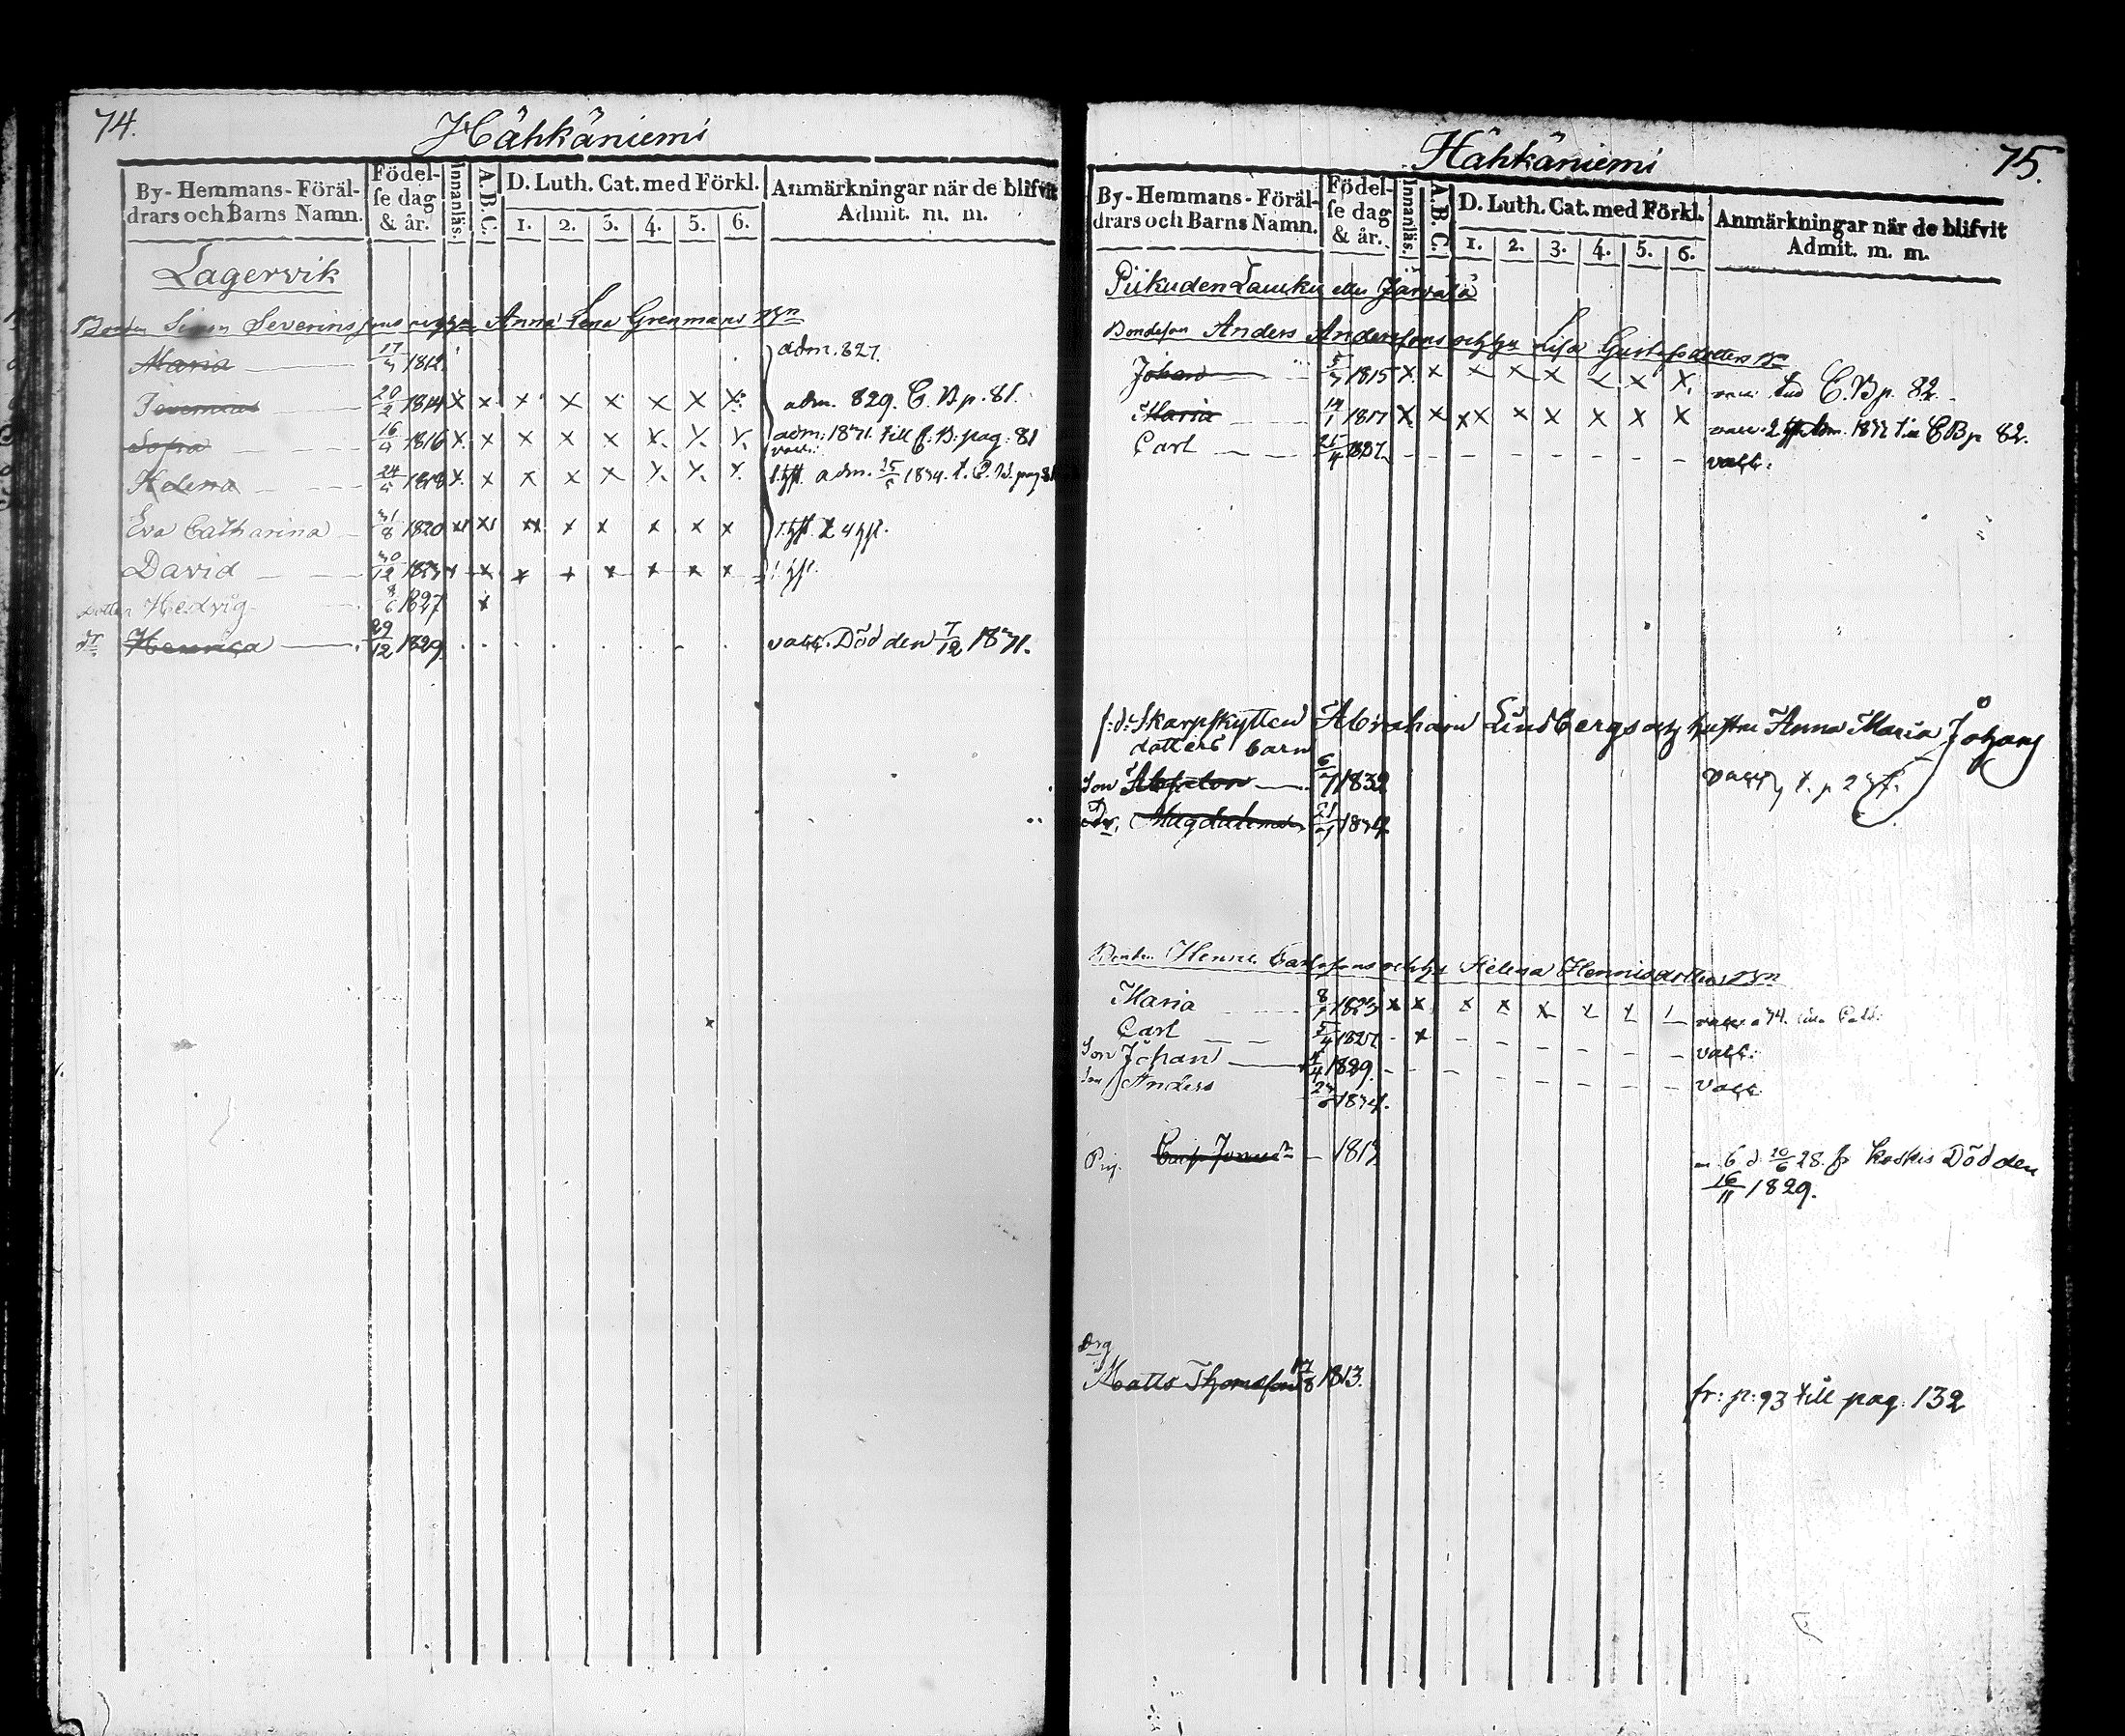 74.
Hähkäniemi
By-Hemmans-Föräl-
drars och Barns Namn.
Födel-
se dag
& år.
Innanläs.
A. B. C.
D. Luth. Cat. med Förkl.
1. 2. 3. 4. 5. 6.
Anmärkningar när de blifvit
Admit. m. m.
Lagervik
Bonden Simon Severinssons och hu Anna Lena Grenmans Bn
Maria 1812 adm. 827.
20/2 1814 x x x x x x x x adm. 829. C. B p. 81.
Sofia 16/4 1816 x x x x x x x x adm: 1831 till C: B: pag: 81
Helena 24/5 1818 x x x x x x x x adm. 1834. t. C. B. pag 81
Eva Catharina 31/8 1820 x x x x x x x x
David 30/12 1823 x x x x x x x x
Dotter Hedvig 8/6 1827 x
Dr Henrica 29/12 1829. vacc. Död den 7/12 1831.
75.
Hähkäniemi
By-Hemmans-Föräl-
drars och Barns Namn.
Födel-
se dag
& år.
Innanläs.
A. B. C.
D. Luth. Cat. med Förkl.
1. 2. 3. 4. 5. 6.
Anmärkningar när de blifvit
Admit. m. m.
eller Järvelä
Bondeson Anders Anderssons och hu Lisa Gustafsdotters Bn
Johan 1815 x x x x x x x x C. B p. 82.
Maria 1817 x x xx x x x x x vacc. 1832 C B p 82.
Carl 25/4 1827. vacc.
f: d: Skarpskytten Abraham Lindbergs och hustru Anna Maria Johans
dotters barn
Son 1832
Dr. Magdalena 1834
Bonden Henric Carlssons och hu Helena Henricsdotters Bn
Maria 1823 x x x x x x
Carl 1827 x vacc.
Son Johan 1829. vacc
Son Anders 1834.
Pig. 1813 Död den
16/11 1829.
Drg
Matts Thomasson 1813. fr: p: 93 till pag. 132